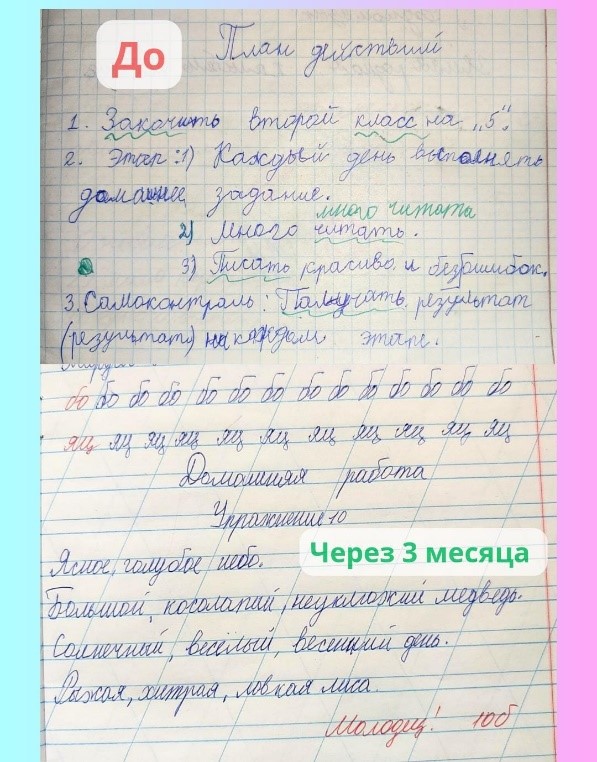 До
План действий
1. Закончить второй класс на „5".
2. Этап: 1) Каждый день выполнять
домашнее задание.
много читата
2) Много читать.
3) Писать красиво и без ошибок.
3. Самоконтроль. Получать результат
(результат) на каждом этапе.
бо бо бо бо бо бо бо бо бо бо бо бо бо бо
яц яц яц яц яц яц яц яц яц яц яц
Домашняя работа
Упражнение 10
Через 3 месяца
Ясное, голубое небо.
Большой, косолапий, неуклюжий медведь.
Солнечный, весёлый, весенний день.
Рыжая, хитрая, ловкая лиса.
Молодец! 10б